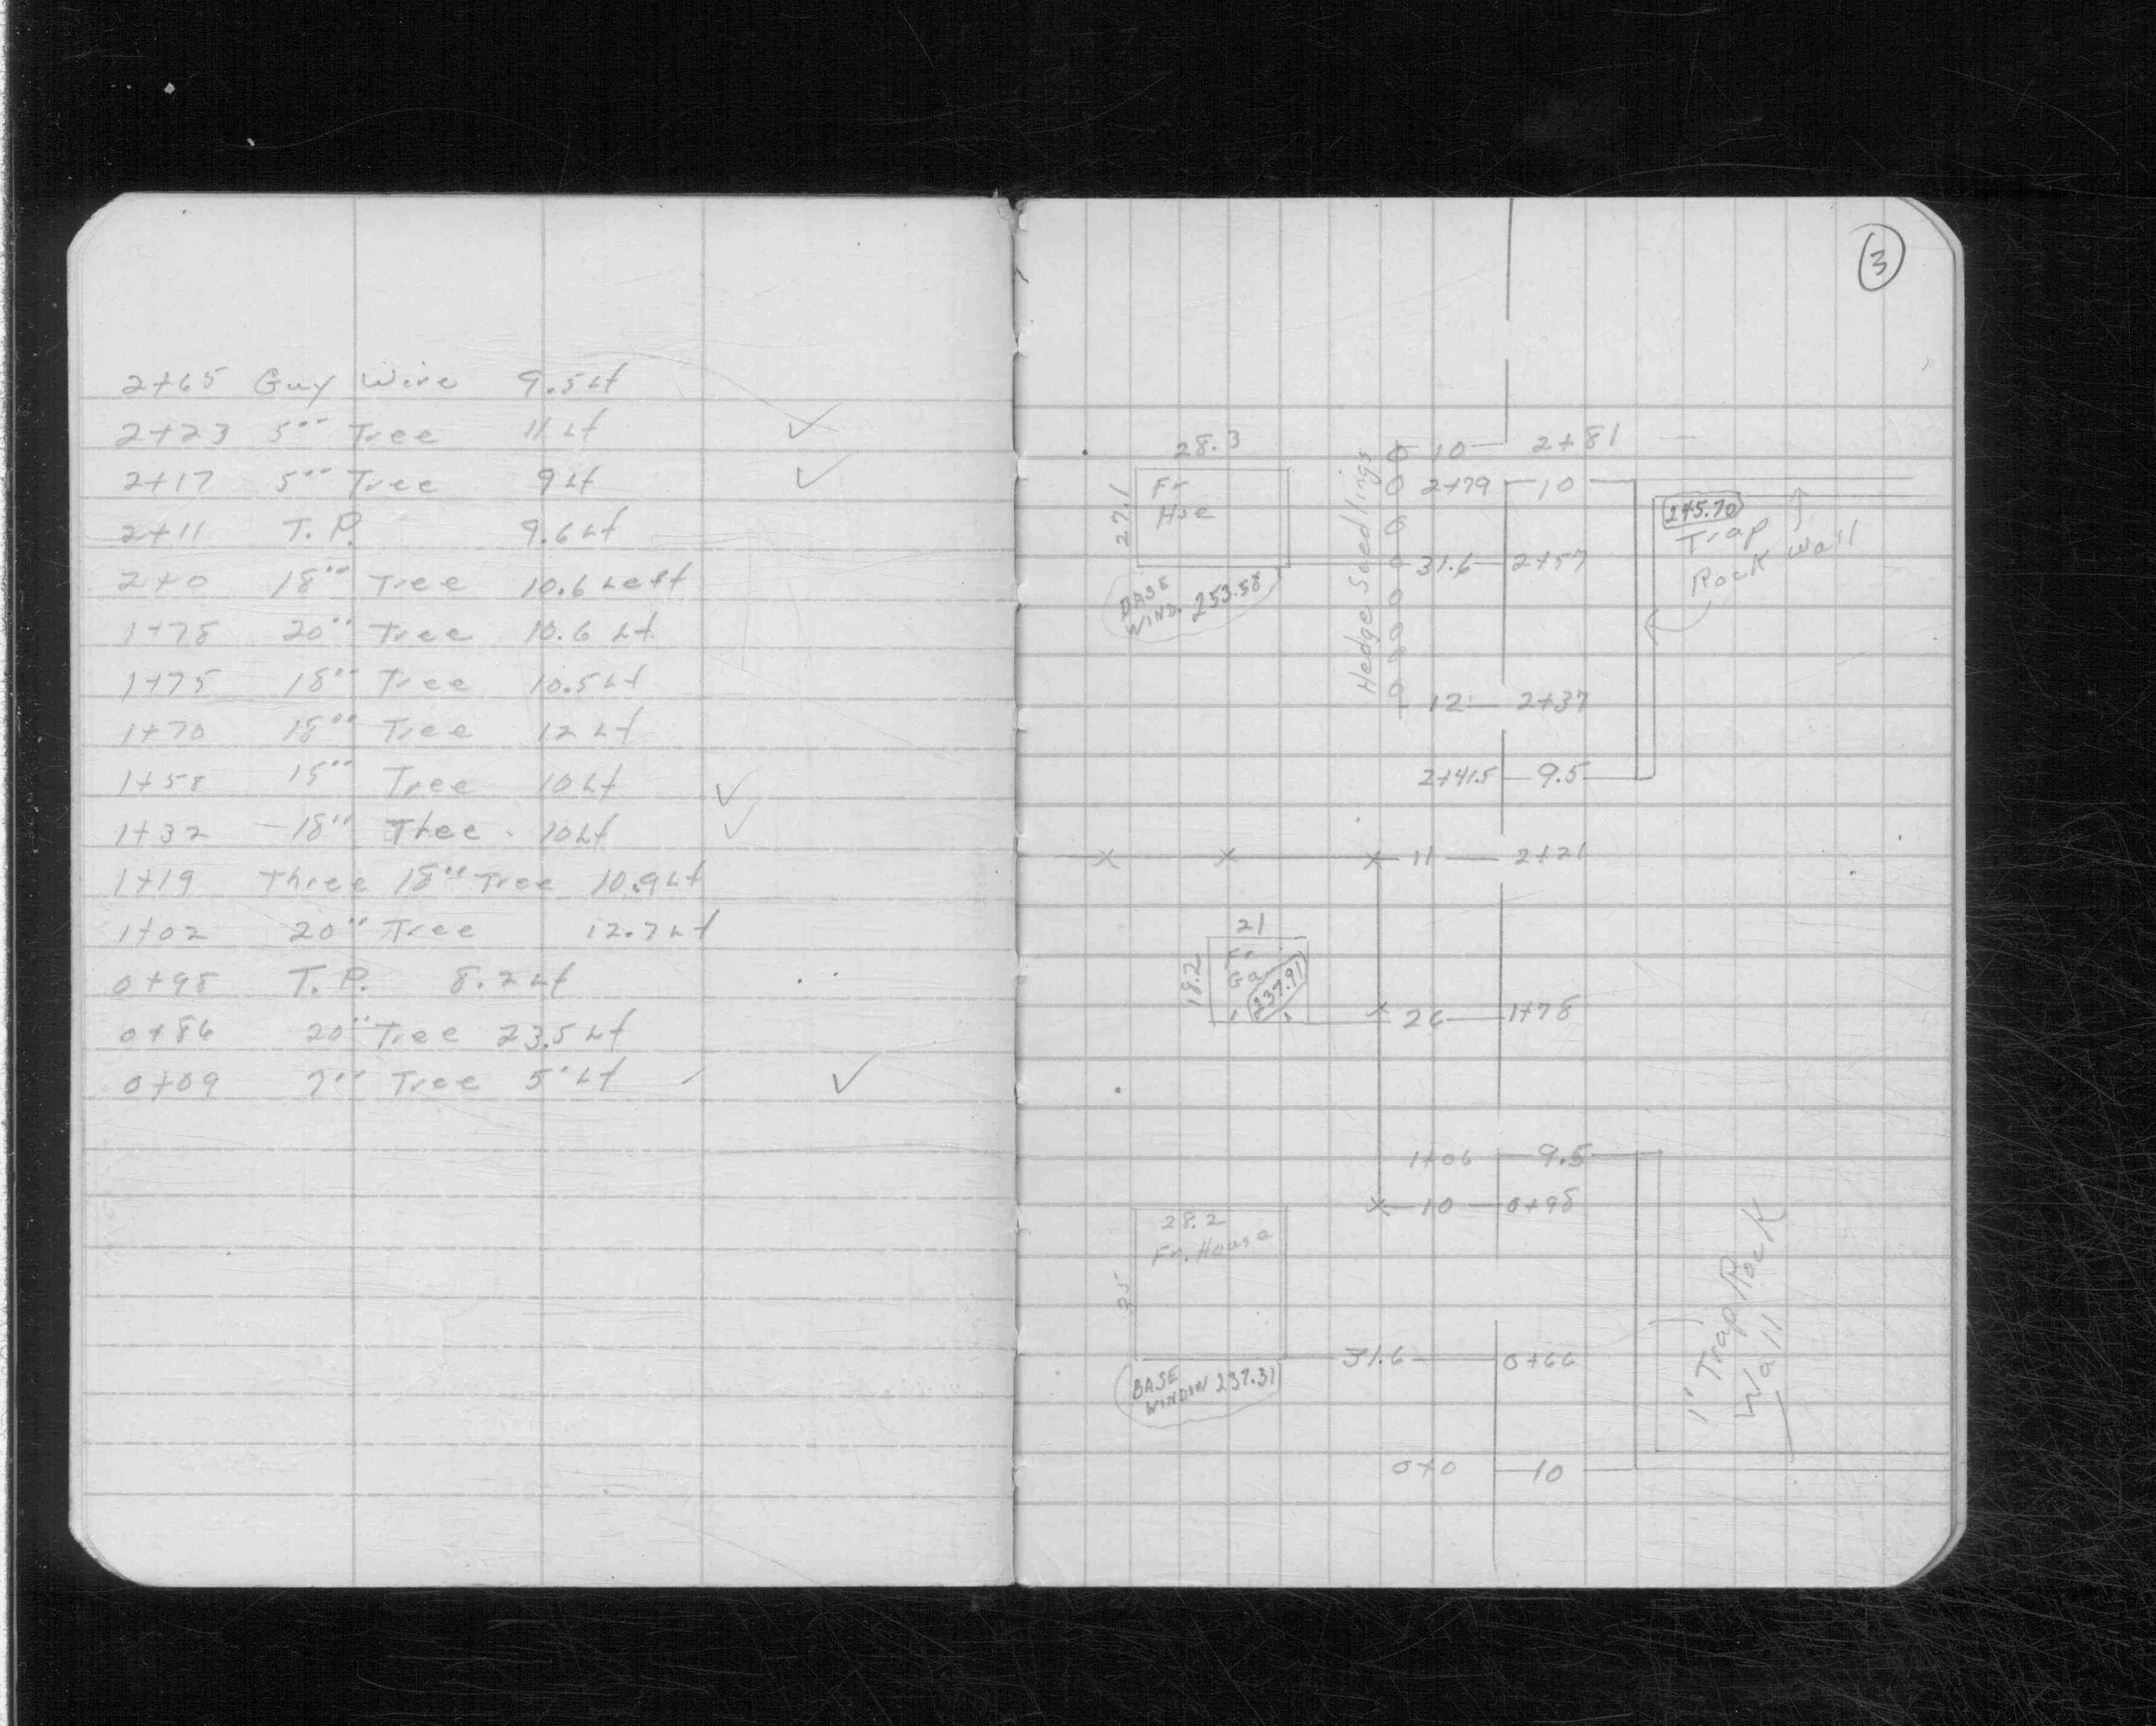 2+65 Guy Wire 9.5 Lt
2+23 5" Tree 11 Lt ✓
2+17 5" Tree 9 Lt ✓
2+11 T.P. 9.6 Lt
2+0 18" Tree 10.6 Left
1+78 20" Tree 10.6 Lt
1+75 18" Tree 10.5 Lt
1+70 18" Tree 12 Lt
1+58 15" Tree 10 Lt ✓
1+32 18" Tree 10 Lt ✓
1+19 Three 18" Tree 10.9 Lt
1+02 20" Tree 12.7 Lt
0+98 T.P. 8.2 Lt
0+86 20" Tree 23.5 Lt
0+09 7" Tree 5' Lt ✓
3
10 2+81
28.3
2+79 10
Fr
Hse
27.1
Hedge Seedlings
245.70
Trap
Rock Wall
31.6 2+57
BASE
WIND. 253.58
12 2+37
2+41.5 9.5
11 2+21
21
Fr
Ga
18.2
237.91
26 1+78
1+06 9.5
10 0+98
28.2
Fr. House
35
1' Trap Rock
Wall
31.6 0+66
BASE
WINDIN 237.31
0+0 10